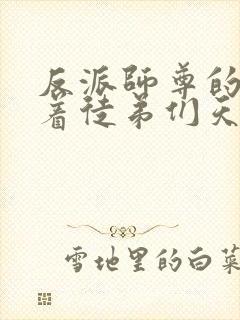 反派师尊的
着徒弟们天
雪地里的白菜